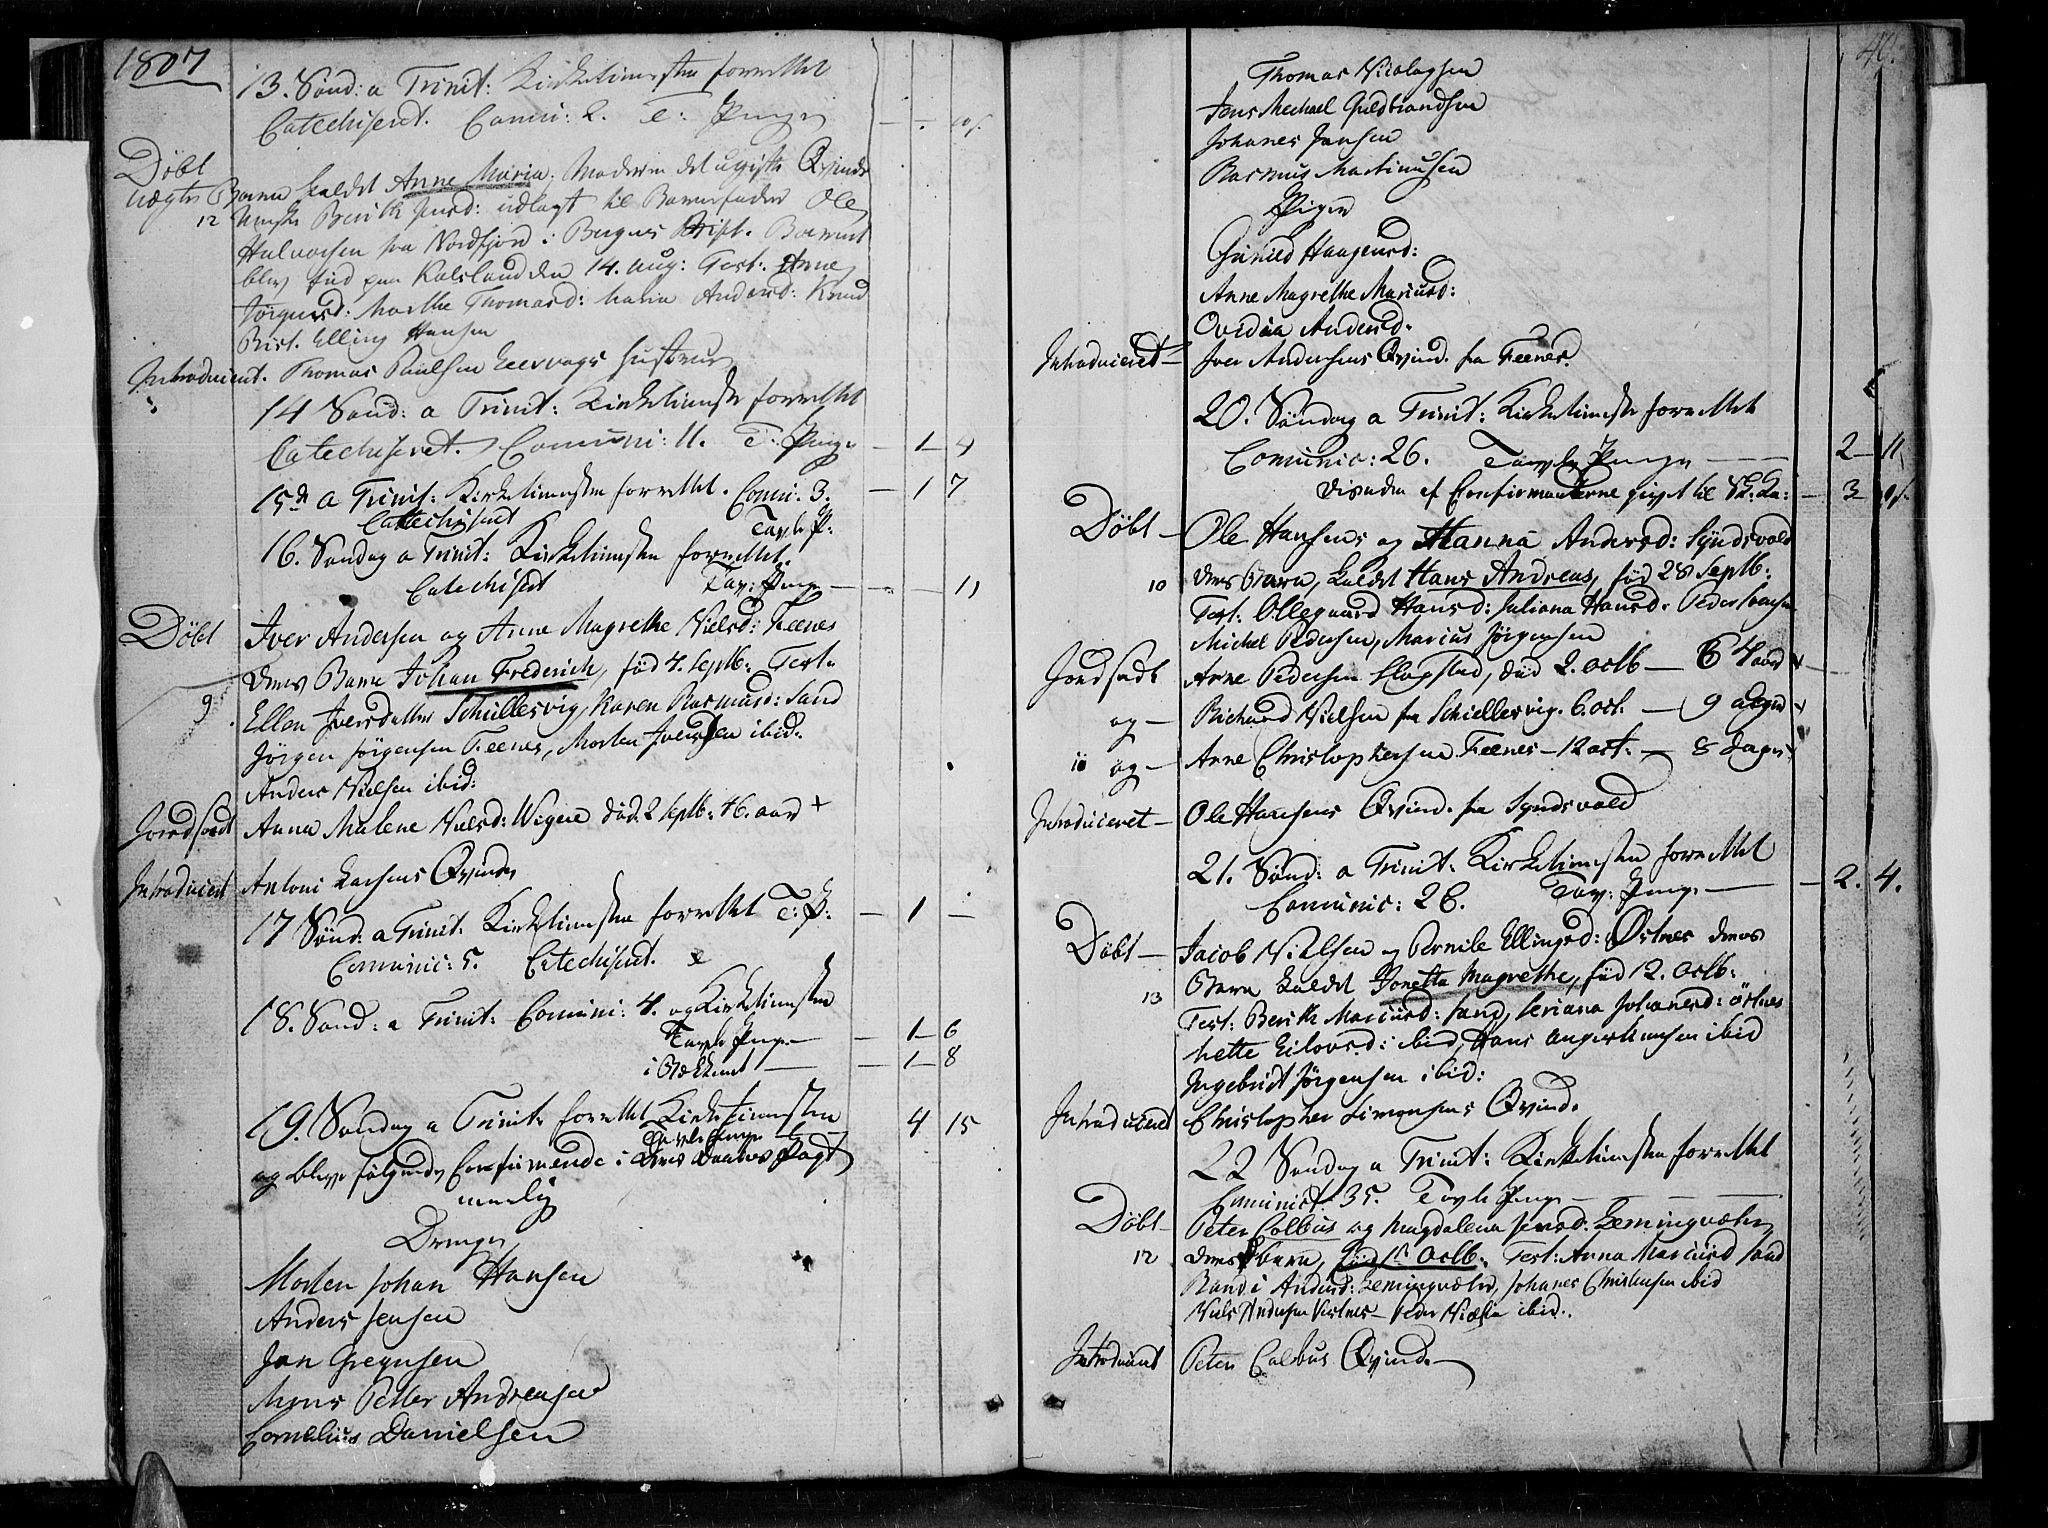 1807
13. Sönd: a Trinit: Kirketienesten forrettet
Catechiseret. Comu: 2. T: Penge
Döbt
uægte Barn kaldet Anne Maria. Moderen det ugifte Qvinde
12 Menske Berith udlagt til Barnefader Ole
Halvorsen fra Nordfjord i Bergens Stift. Barnet
blev föd paa den 14. Aug: Test: Anne
Jörgensd: Marthe Thomasd: Maria Andersd: Knud
Elling Hansen
Introduceret. Thomas Paulsen Hustrue
14 Sönd: a Trinit: Kirketieneste forrettet
Catechiseret. Comuni: 11. T: Penge — 1 – 4
15de a Trinit: Kirketienesten forrettet. Comu: 3. — 1 7
Catechiseret Tavle P:
16. Söndag a Trinit: Kirketienesten forrettet.
Catechiseret Tav: Penge — 11
Döbt Iver Andersen og Anne Magrethe Nielsd: Feenes
deres Barn Johan Frederich, föd 4. Septb: Test:
9. Ellen Iversdatter Schiellesvig, Karen Rasmusd: Sand
Jörgen Jörgensen Feenes, Morten Iversen ibid:
Anders Nielsen ibid:
Jordfæst Anna Malene Nielsd: död 2 Septb: 46. aar +
Introduceret Antoni Larsens Qvinde
17 Sönd: a Trinit: Kirketienesten forrettet T: P: — 1 —
Comunic: 5. Catechiseret.
18. Sönd: a Trinit: Comuni: 4. og Kirketienesten
Tavle Penge — 1 – 6
i Blokken — 1 – 8
19. Söndag a Trinit: forrettet Kirketienesten 4 15
Tavle Penge
og blev fölgende Confirmerede i deres Daabes Pagt
nemlig
Drenge
Morten Johan Hansen
Anders Jensen
Jan Gregusen
Mons Petter Andreasen
Cornelius Danielsen
40.
Thomas Nicolaysen
Jens Mechael Guldbrandsen
Johanes Jansen
Rasmus Martinusen
Piger
Gunild Haagensd:
Anne Magrethe Mariusd:
Ovedia Andersd:
Introduceret — Iver Andersens Qvind. fra Feenes.
20. Söndag a Trinit: Kirketieneste forrettet
Comunic: 26. Tavle Penge — 2 – 11
af Confirmanterne givet til — 3
Döbt — Ole Hansens og Hanna Andersd: Syndsvold
10 deres Barn, kaldet Hans Andreas, föd 28 Septb:
Test: Ollegaard Hansd: Juliana Hansd: Peder
Michel Pedersen, Marius Jörgensen
Jordfæst Arne Pedersen Slapstad, död 2. octb — 64 aar +
og — Richard Nielsen fra Schiellesvig. 6. oct. — 9 dage +
10 og — Arne Christophersen Feenes — 12 oct. — 8 dage
Introduceret — Ole Hansens Qvind. fra Syndsvold
21. Sönd: a Trinit: Kirketienesten forrettet
Comunic: 26. Tav: Penge — 2. 4.
Döbt — Jacob Nielsen og Pernile Ellingsd: Östnes deres
13 Barn kaldet Jonetta Magrethe, föd 12. octb:
Test: Berith Mariusd: Sand, Seriana Johanesd: Östnes
Mette Eilovsd: ibid, Hans ibid
Ingebrict Jörgensen ibid:
Introduceret Christopher Simensens Qvind.
22 Söndag a Trinit: Kirketienesten forrettet
Comunict. 35. Tavle Penge —
Döbt — Peter Colbus og Magdalena Iversd:
12 deres Barn, föd octb: Test: Anna Mariusd Sand
Randi Andersd: Johanes Christensen ibid
Niels Andersen — Peder ibid.
Introduceret Peter Colbus Qvind.